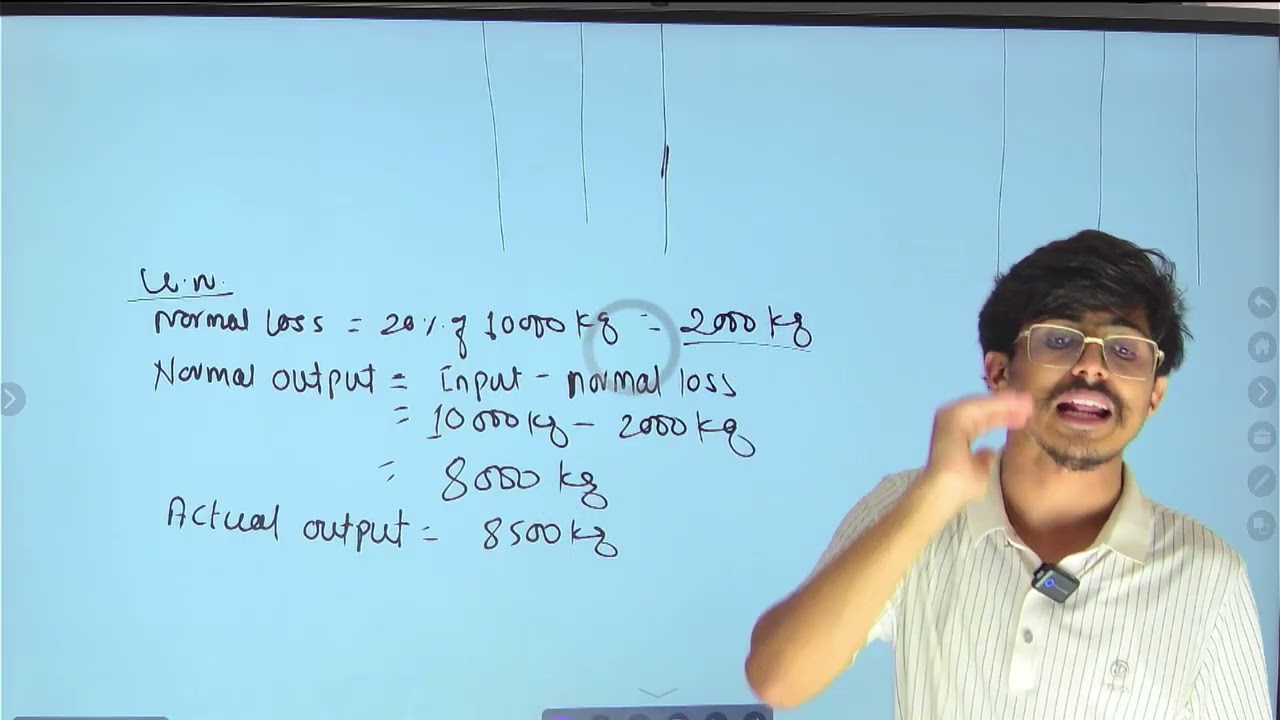 W.N.
Normal Loss = 20% of 10000 kg = 2000 kg
Normal output = Input - normal loss
= 10000 kg - 2000 kg
= 8000 kg
Actual output = 8500 kg